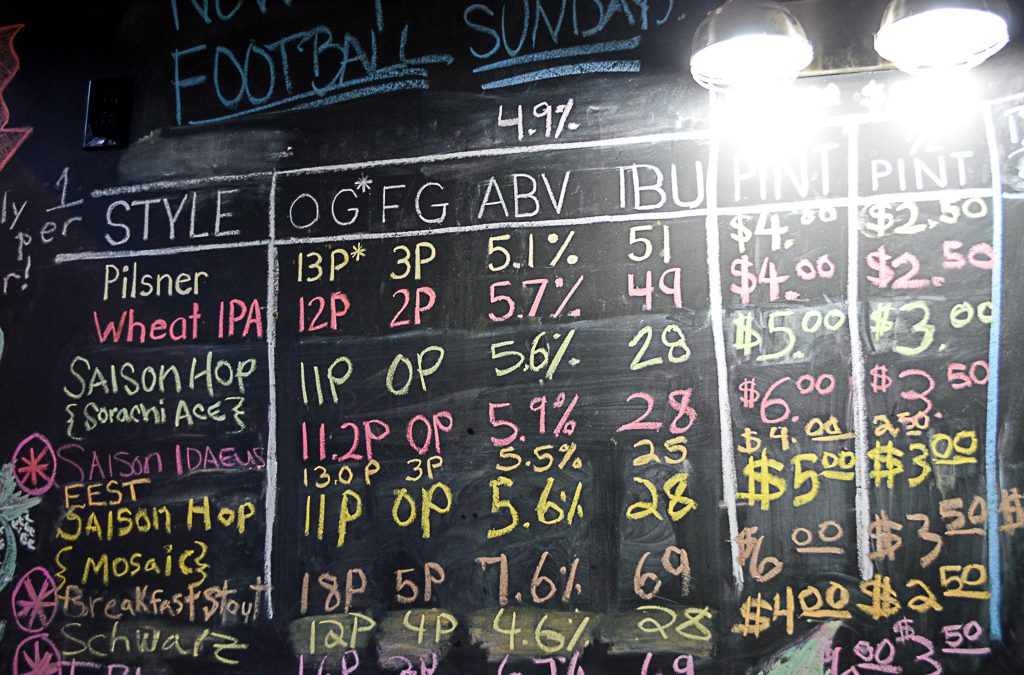 FOOTBALL SUNDAYS.
4.9%
STYLE OG* FG ABV IBU PINT ½ PINT
Pilsner 13P* 3P 5.1% 51 $4.00 $2.50
Wheat IPA 12P 2P 5.7% 49 $4.00 $2.50
SAISON HOP 11P 0P 5.6% 28 $5.00 $3.00
{Sorachi Ace}
SAISON IDAEUS 11.2P 0P 5.9% 28 $6.00 $3.50
FEST 13.0P 3P 5.5% 25 $4.00 2.50
SAISON HOP 11P 0P 5.6% 28 $5.00 $3.00
{Mosaic}
Breakfast Stout 18P 5P 7.6% 69 $6.00 $3.50
Schwarz 12P 4P 4.6% 28 $4.00 $2.50
$3.50